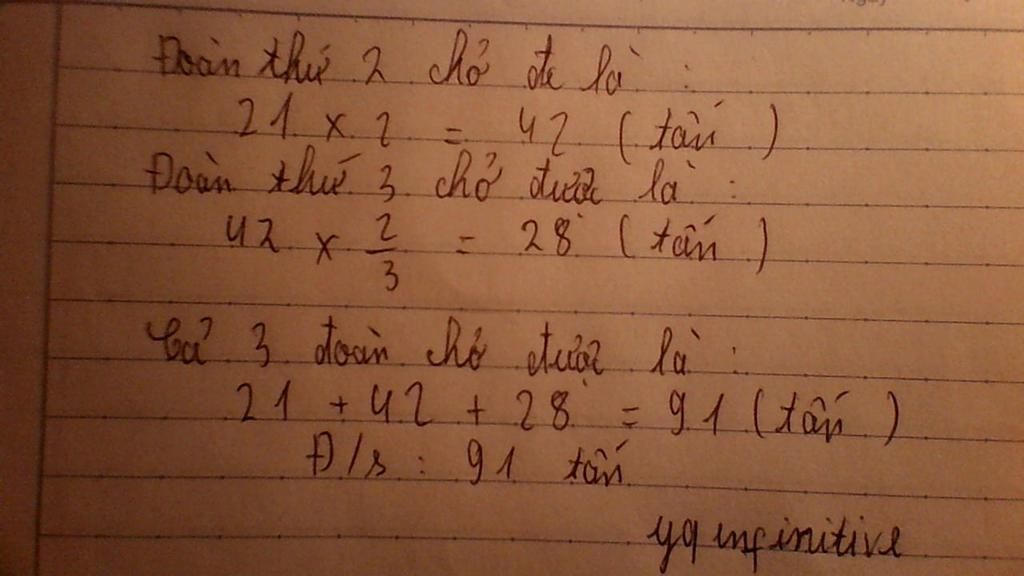 Đoàn thứ 2 chở đc là :
21 x 2 = 42 (tấn)
Đoàn thứ 3 chở được là :
42 x 2/3 = 28 (tấn)
Cả 3 đoàn chở được là :
21 + 42 + 28 = 91 (tấn)
Đ/s : 91 tấn
yq infinitive